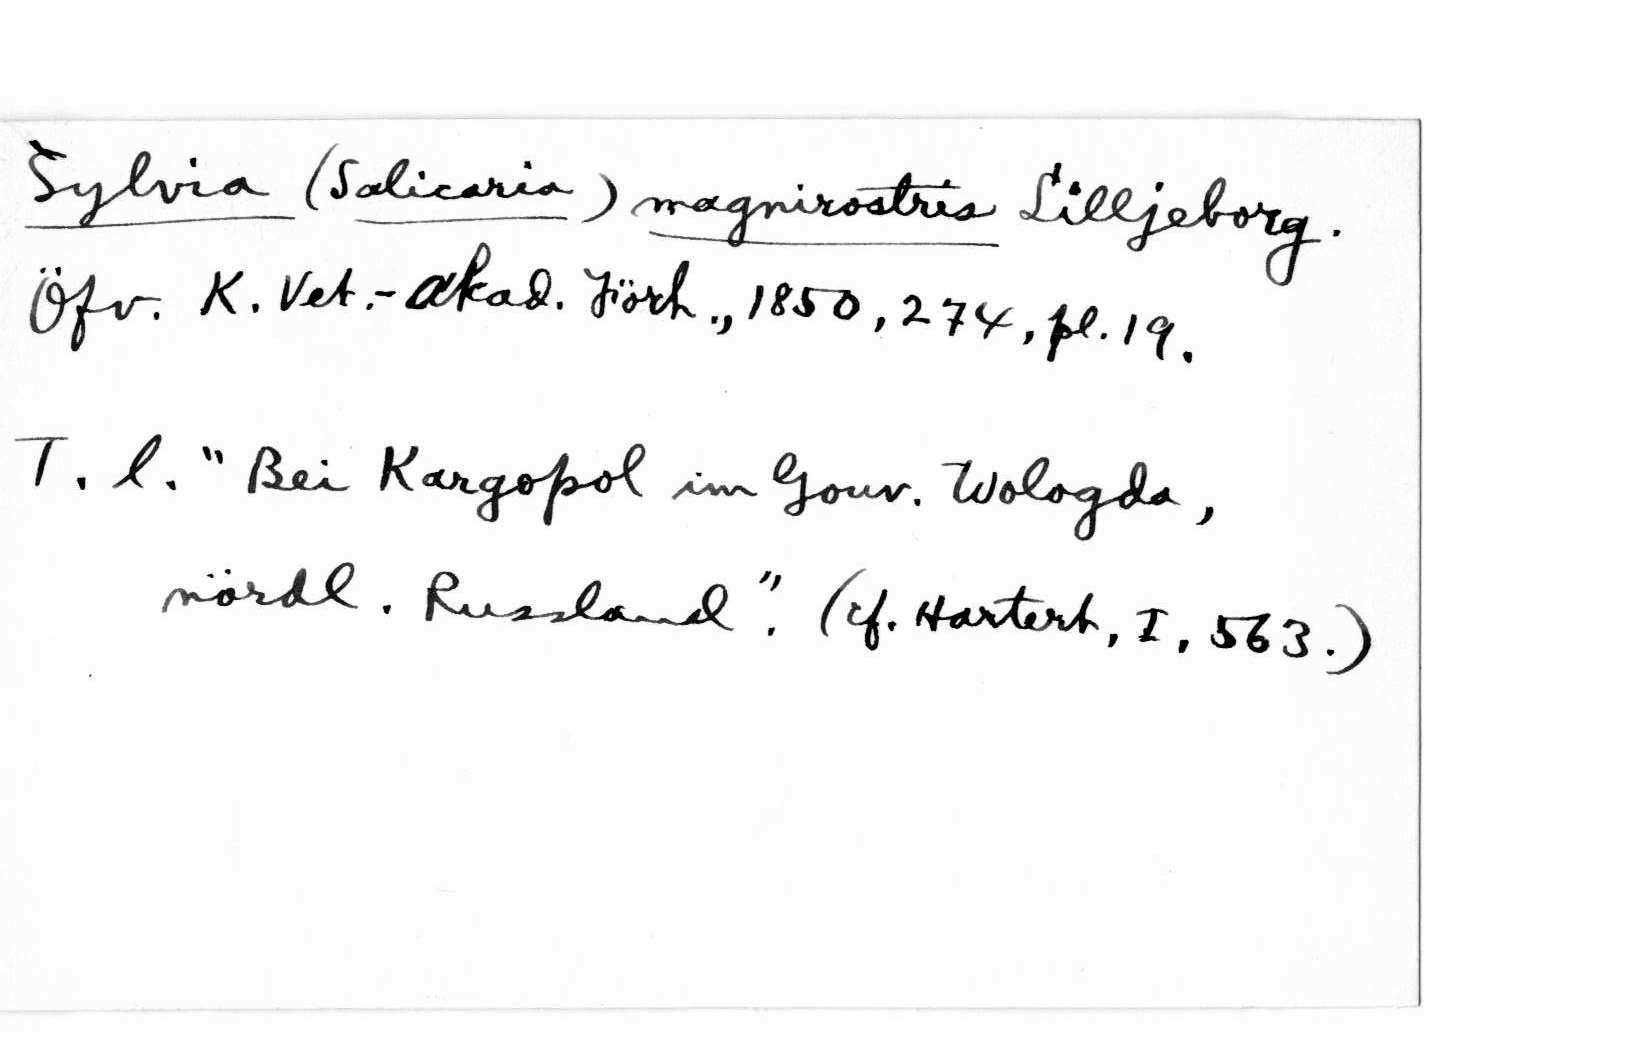 Sylvia (Salicaria) magnirostris Lilljeborg.
Öfv. K. Vet.-Akad. Förh., 1850, 274, pl. 19.
T. l. "Bei Kargopol im Gouv. Wologda,
nördl. Russland". (cf. Hartert, I, 563.)